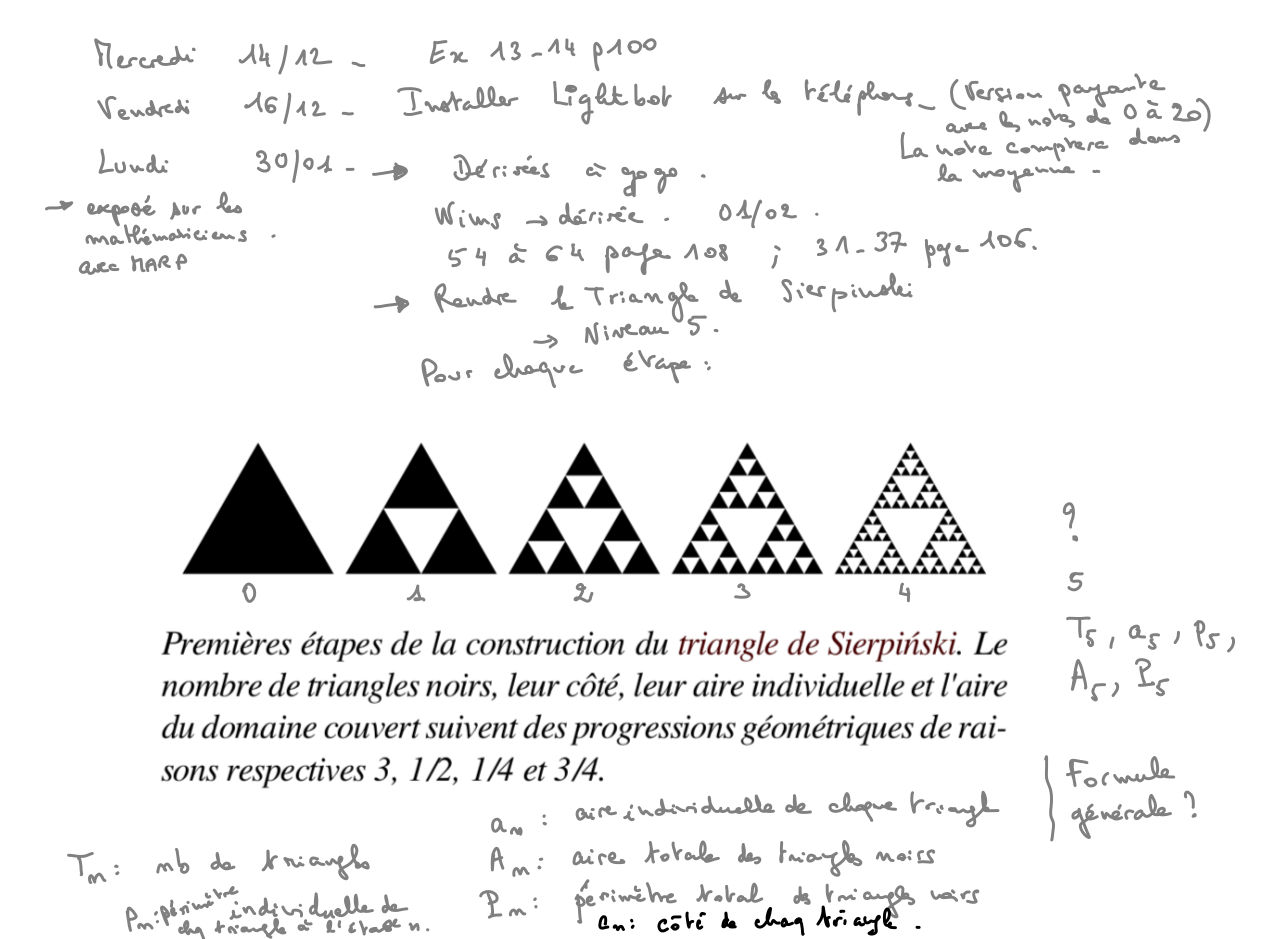 Mercredi 14/12 - Ex 13-14 p100
Vendredi 16/12 - Installer Lightbot sur le téléphone_ (Version payante
avec les notes de 0 à 20)
La note comptera dans
la moyenne -
Lundi 30/01 - → Dérivées à gogo .
→ exposé sur les
mathématiciens .
avec MARP
Wims → dérivée . 01/02 .
54 à 64 page 108 ; 31-37 page 106.
→ Rendre le Triangle de Sierpinski
→ Niveau 5.
Pour chaque étape :
0 1 2 3 4
?
5
T5, a5, p5,
A5, P5
Premières étapes de la construction du triangle de Sierpiński. Le
nombre de triangles noirs, leur côté, leur aire individuelle et l'aire
du domaine couvert suivent des progressions géométriques de rai-
sons respectives 3, 1/2, 1/4 et 3/4.
Formule
générale ?
an : aire individuelle de chaque triangle
Tn : nb de triangles
An : aire totale des triangles noirs
pn : périmètre individuelle de
chq triangle à l'étape n.
Pn : périmètre total des triangles noirs
cn : côté de chaq triangle .